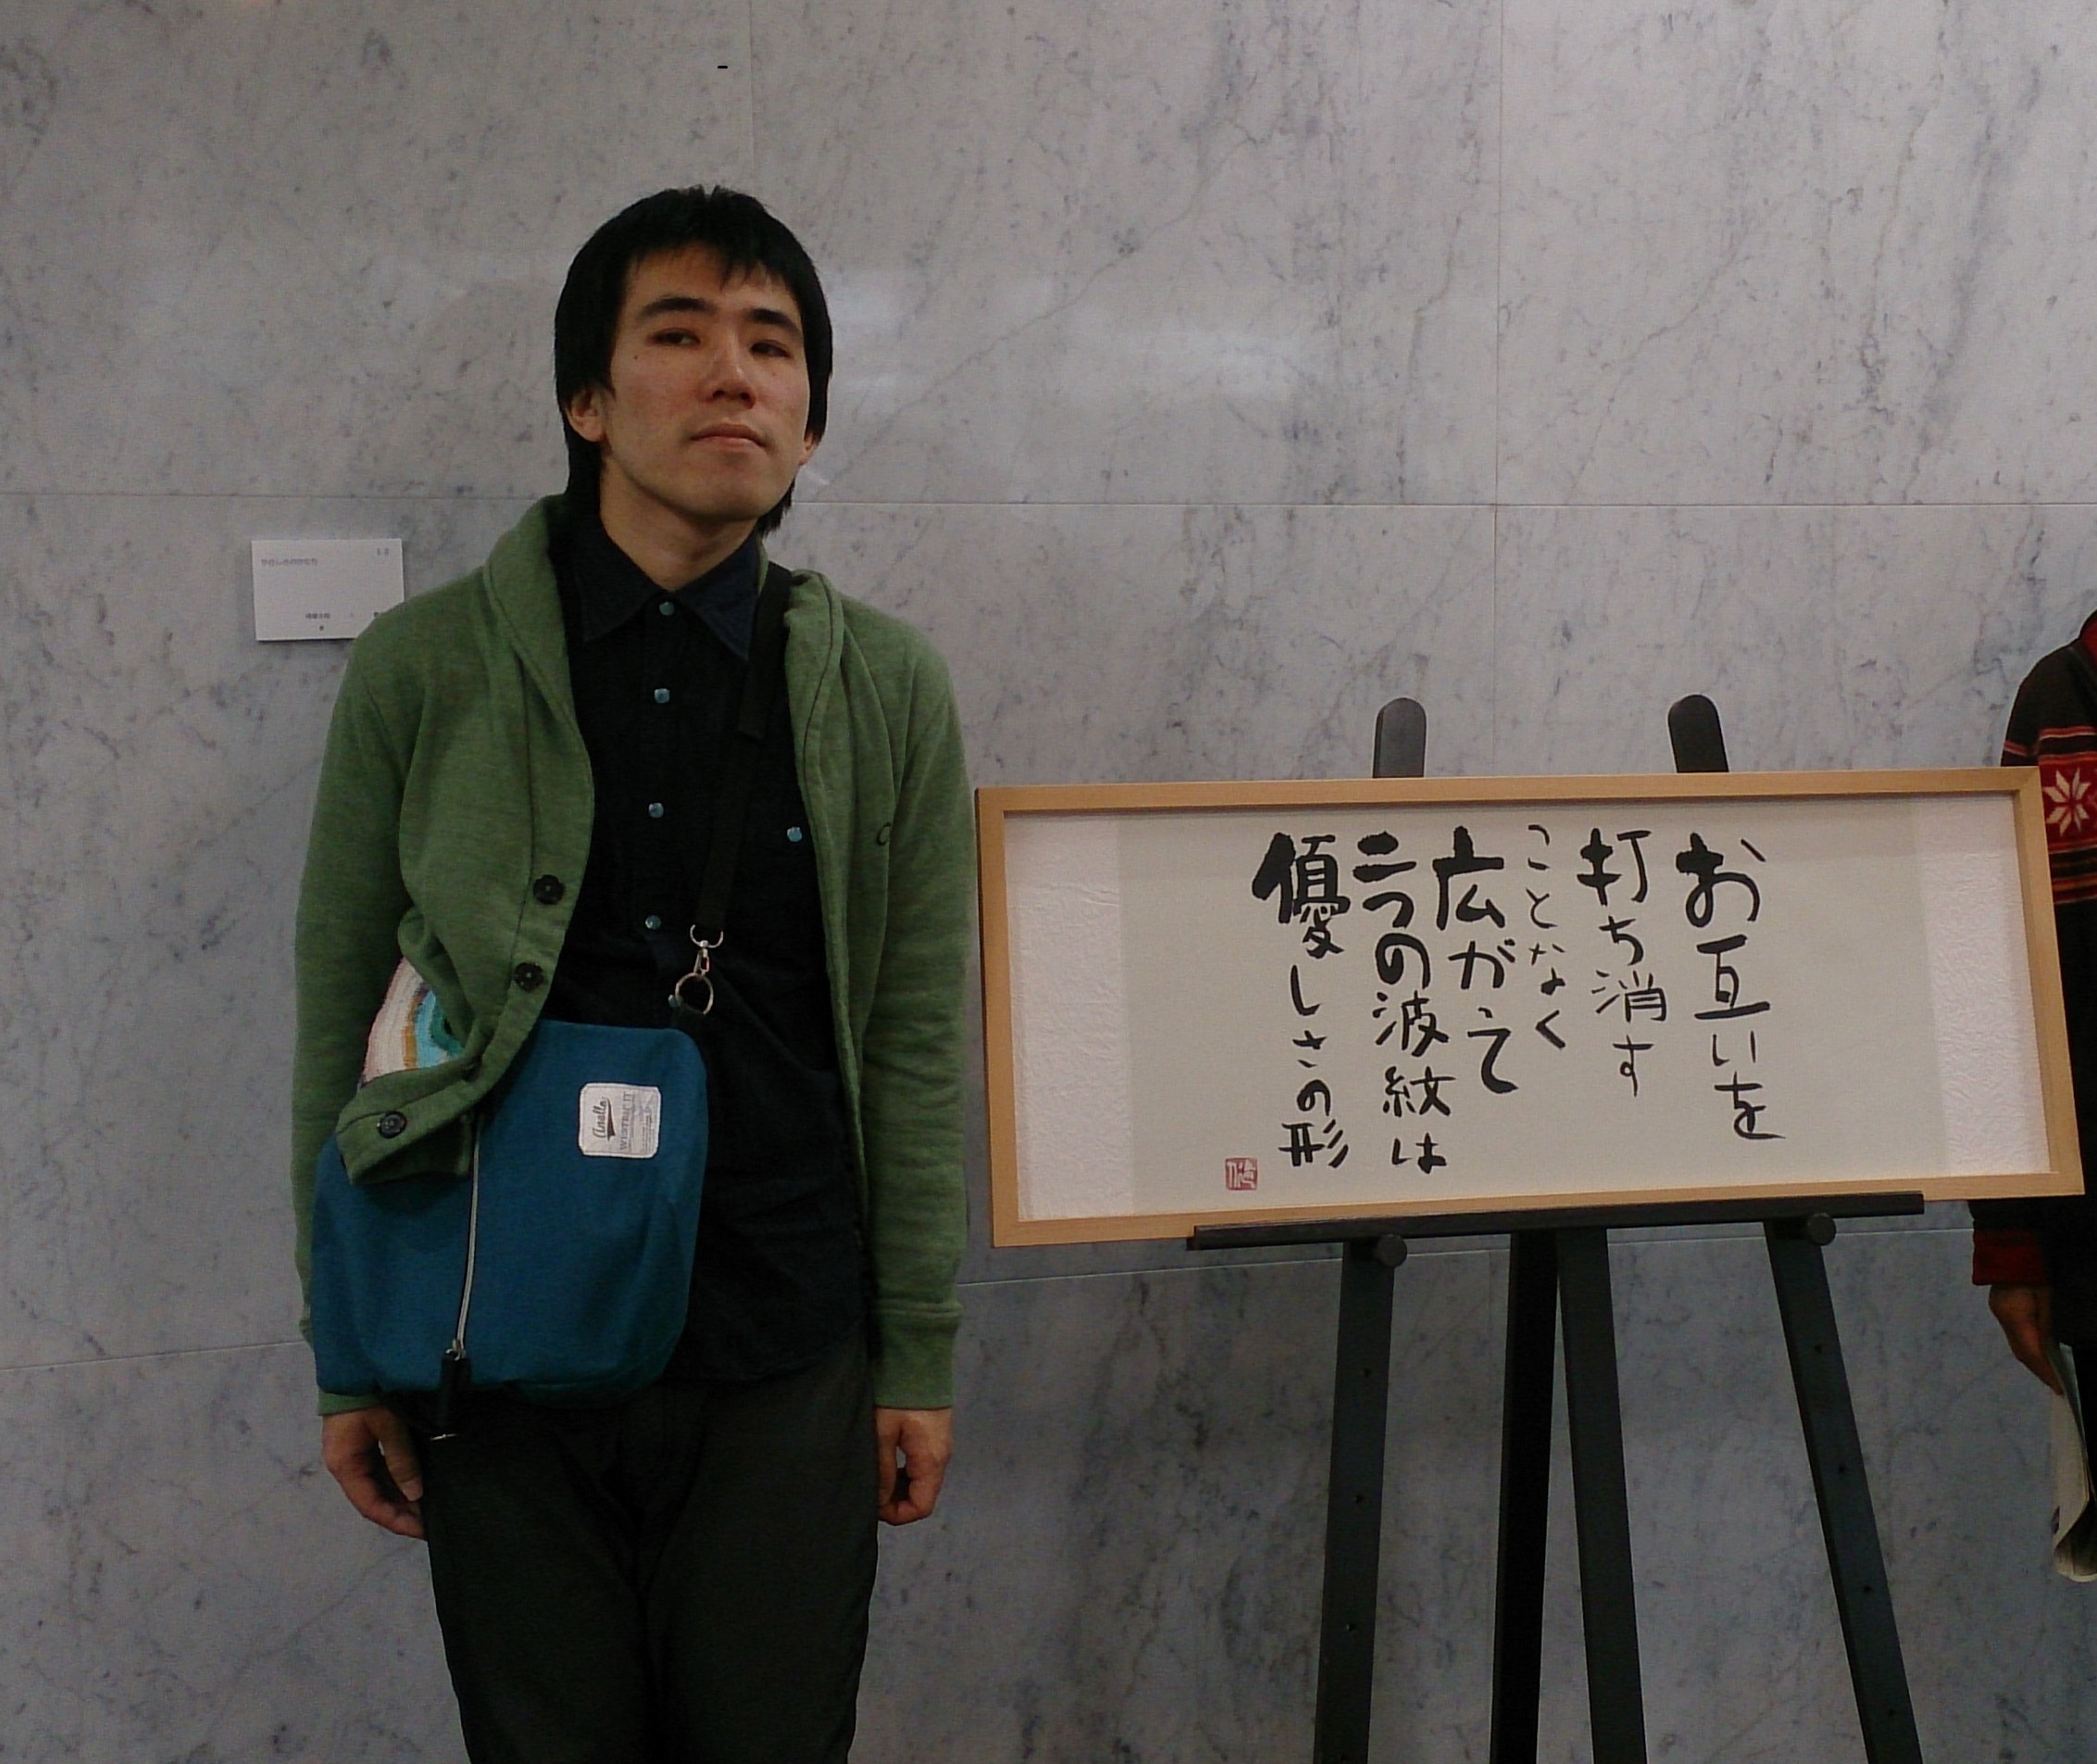 お互いを
打ち消す
ことなく
広がって
二つの波紋は
優しさの形